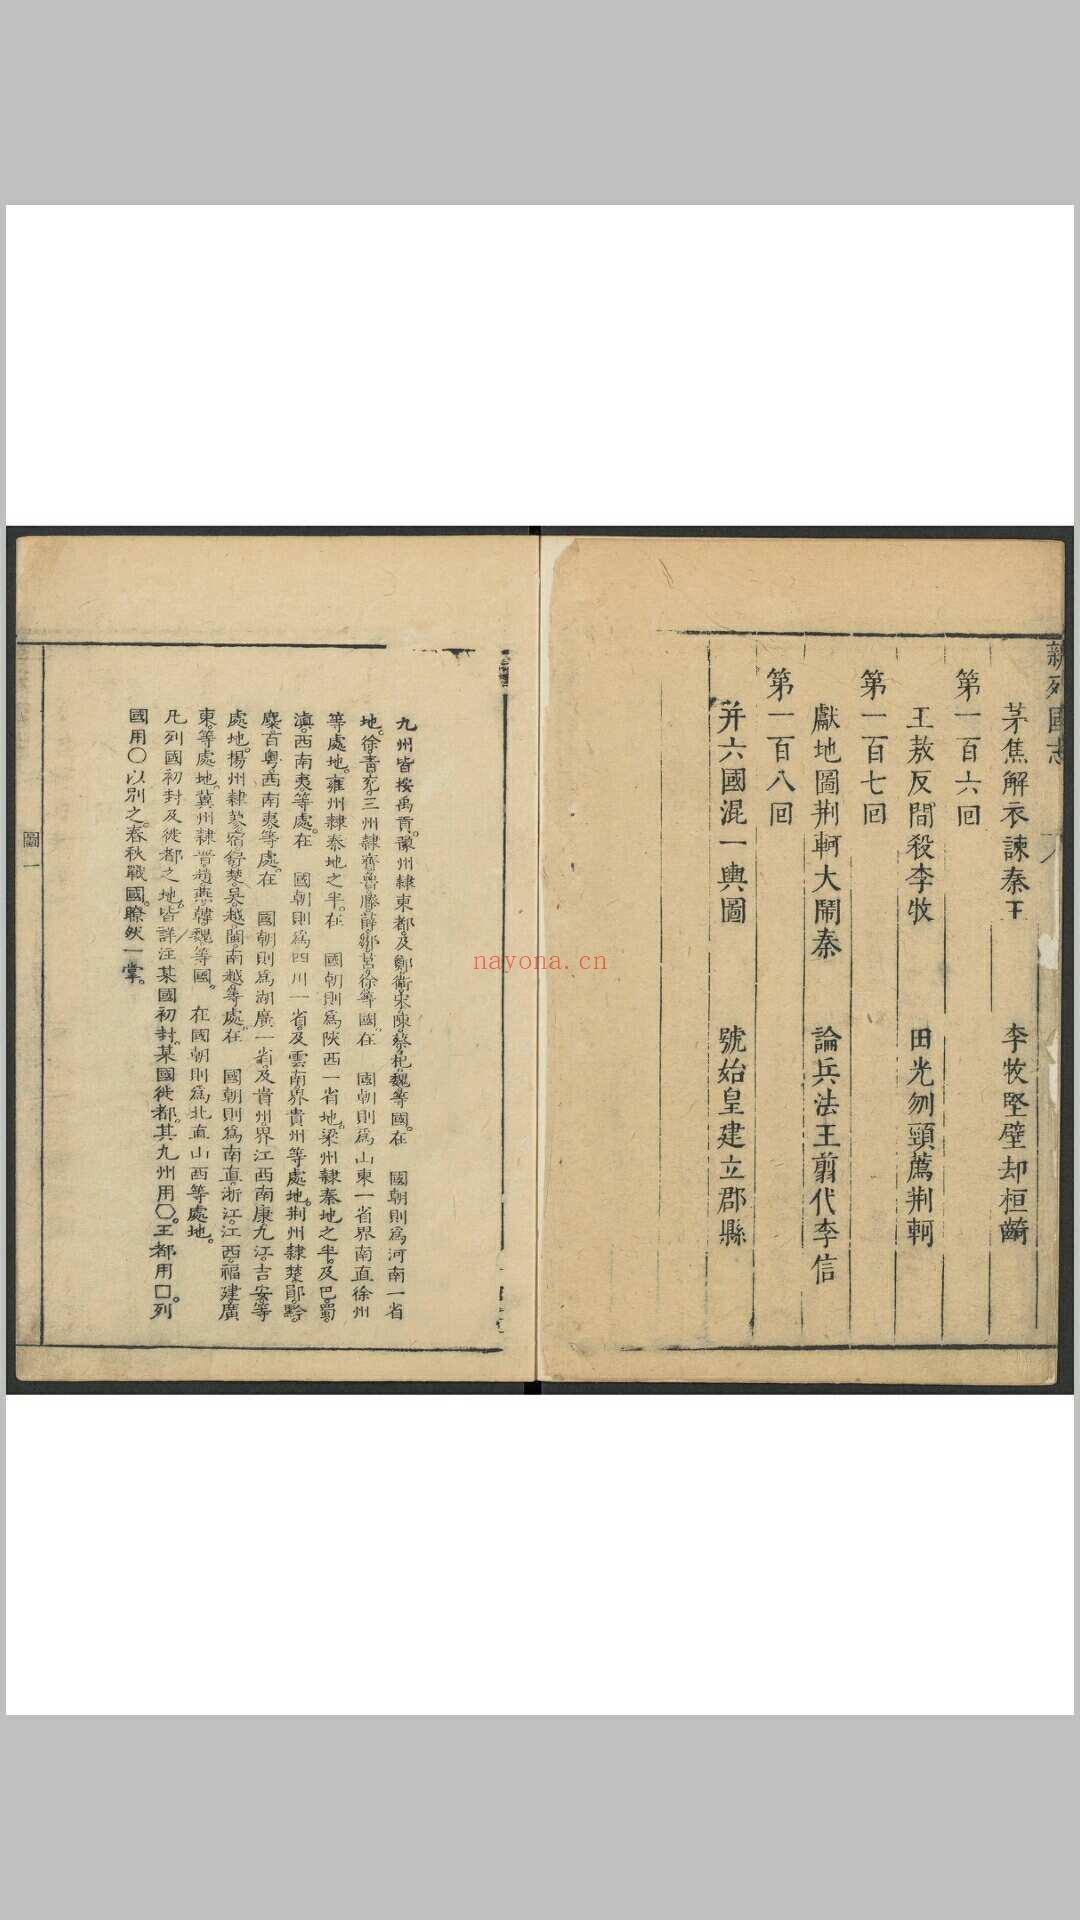 新列國志
茅焦解衣諫秦王 李牧堅壁却桓齮
第一百六回
王敖反間殺李牧 田光刎頸薦荆軻
第一百七回
獻地圖荆軻大鬧秦 論兵法王翦代李信
第一百八回
并六國混一輿圖 號始皇建立郡縣
九州皆按禹貢。豫州隸東都。及鄭衞宋陳蔡杞魏等國。在 國朝則爲河南一省
地。徐青兗。三州隸齊魯滕薛鄒莒徐等國。在 國朝則爲山東一省界南直徐州
等處地。雍州隸秦地之半。在 國朝則爲陝西一省地。梁州隸秦地之半。及巴蜀。
滇。西南夷等處。在 國朝則爲四川一省。及雲南界貴州等處地。荆州隸楚鄖。黔。
麋。百粵。西南夷等處。在 國朝則爲湖廣一省。及貴州。界江西南康九江。吉安等
處地。揚州隸蓼。宿。舒。楚。吳。越。閩。南越等處。在 國朝則爲南直。浙江。江西。福建廣
東。等處地。冀州隸晋。趙。燕。韓。魏等國。 在國朝則爲北直山西等處地。
凡列國初封及徙都之地。皆詳注某國初封。某國徙都。其九州用⬡。王都用□。列
國用○以別之。春秋戰國。瞭然一掌。
圖 一
nayona.cn